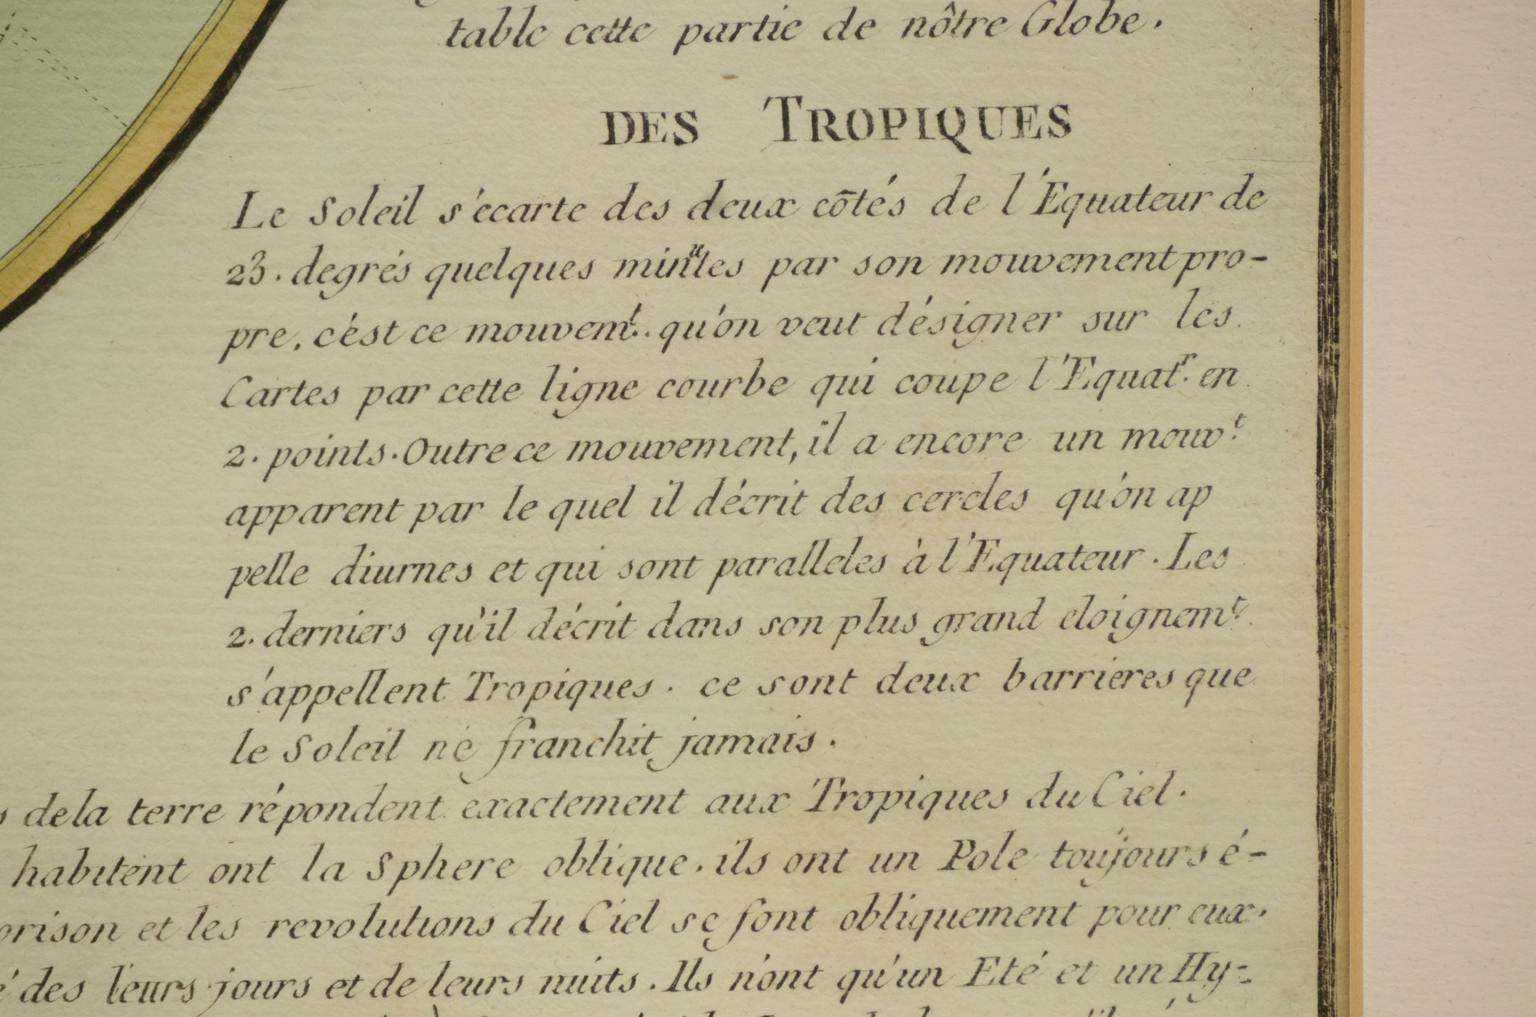 table cette partie de nôtre Globe.
DES TROPIQUES
Le Soleil s'écarte des deux côtés de l'Equateur de
23. degrés quelques minutes par son mouvement pro-
pre, c'ést ce mouvemt. qu'on veut désigner sur les
Cartes par cette ligne courbe qui coupe l'Equatr. en
2. points. Outre ce mouvement, il a encore un mouvt.
apparent par le quel il décrit des cercles qu'on ap
pelle diurnes et qui sont paralleles à l'Equateur. Les
2. derniers qu'il décrit dans son plus grand eloignemt.
s'appellent Tropiques. ce sont deux barrieres que
le Soleil ne franchit jamais.
dela terre répondent exactement aux Tropiques du Ciel.
habitent ont la Sphere oblique. ils ont un Pole toujours é-
orison et les revolutions du Ciel se font obliquement pour eux.
é des leurs jours et de leurs nuits. Ils n'ont qu'un Eté et un Hy-